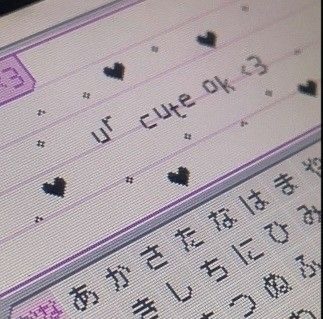 <3
ur cute ok <3
かな
あかさたなはまや
きしちにひみ
つぬふ